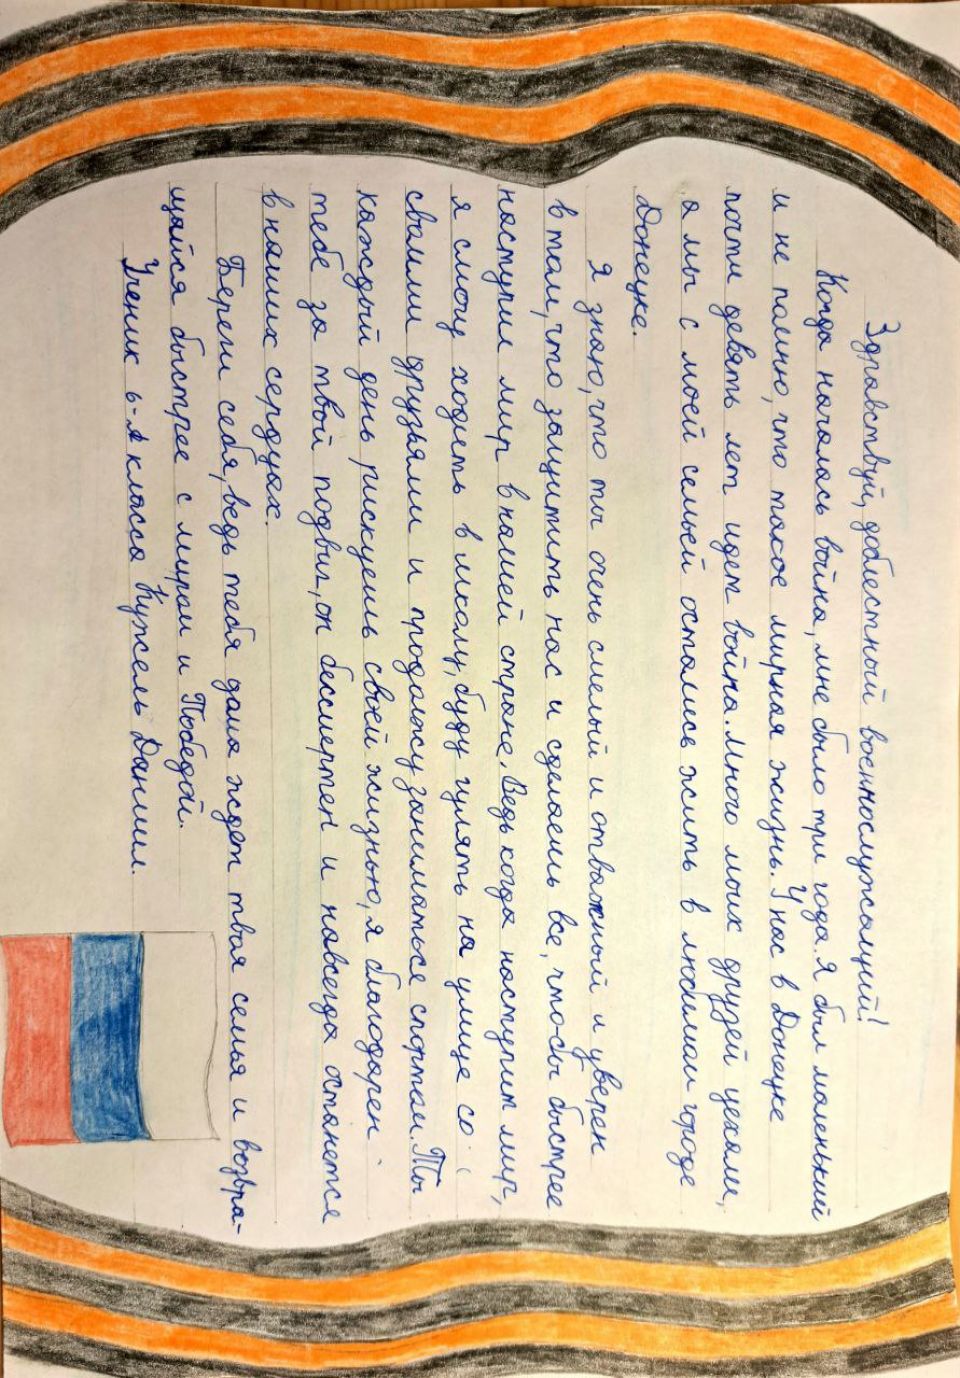 Здравствуй, доблестный военнослужащий!
Когда началась война, мне было три года. Я был маленький
и не помню, что такое мирная жизнь. У нас в Донецке
почти девять лет идет война. Много моих друзей уехали,
а мы с моей семьей остались жить в любимом городе
Донецке.
Я знаю, что ты очень смелый и отважный и уверен
в том, что защитить нас и сделаешь все, что-бы быстрее
наступил мир в нашей стране. Ведь когда наступит мир,
я смогу ходить в школу, буду гулять на улице со
своими друзьями и продолжу заниматься спортом. Ты
каждый день рискуешь своей жизнью, я благодарен
тебе за твой подвиг, он бессмертен и навсегда останется
в наших сердцах.
Береги себя, ведь тебя дома ждет твоя семья и возвра-
щайся быстрее с миром и Победой.
Ученик 6-А класса Кужель Даниил.